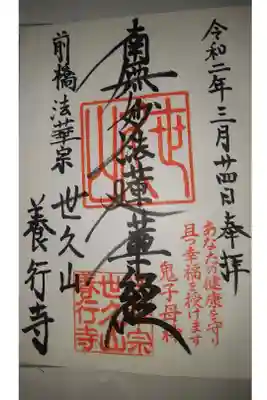 令和二年三月廿四日 奉拝
あなたの健康を守り
且つ幸福を授けます
鬼子母神
南無妙法蓮華経
前橋法華宗 世久山
養行寺